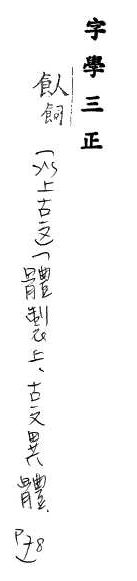 字學三正
飤飼（以上古文）（體製上、古文異體 P78）